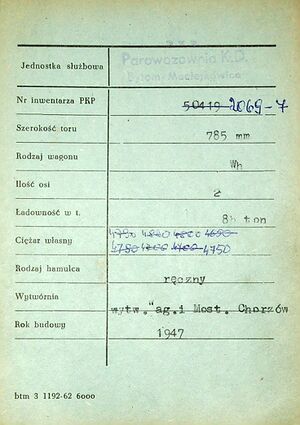 P K P
Parowozownia K.D.
Bytom Maciejkowice
Jednostka służbowa
Nr inwentarza PKP 50419 2069-7
Szerokość toru 785 mm
Rodzaj wagonu Wh
Ilość osi 2
Ładowność w t. 8½ ton
4790 4820 4800 4690
Ciężar własny 4780 4200 4700 4750
Rodzaj hamulca ręczny
Wytwórnia wytw. "ag.i Most. Chorzów
Rok budowy 1947
btm 3 1192-62 6000